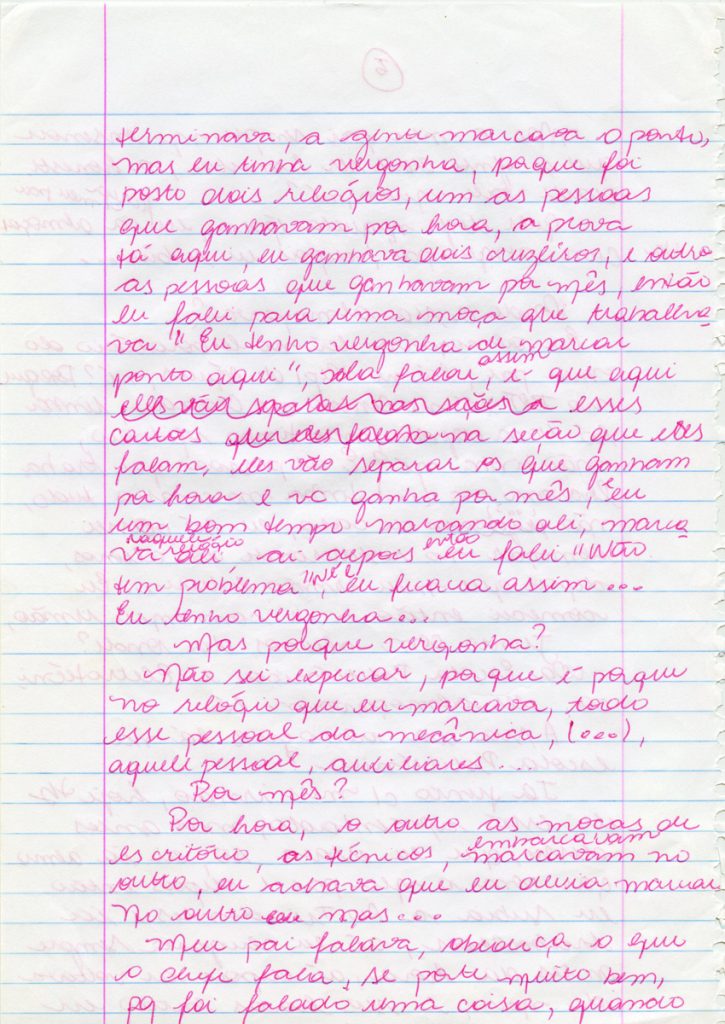 terminava, a gente marcava o ponto,
mas eu tinha vergonha, porque foi
posto dois relógios, um as pessoas
que ganhavam por hora, a prova
tá aqui, eu ganhava dois cruzeiros, e outro
as pessoas que ganhavam por mês, então
eu falei para uma moça que trabalha
va "Eu tenho vergonha de marcar
ponto aqui", ela falou, assim é que aqui
esses
cartões na seção que eles
falam, eles vão separar os que ganham
por hora e vc ganha por mês, e eu
um bom tempo marcando ali, marca
va naquele relógio aí depois então eu falei "Não
tem problema", né, eu ficava assim...
Eu tenho vergonha...
Mas porque vergonha?
Não sei explicar, porque é porque
no relógio que eu marcava, todo
esse pessoal da mecânica, (...),
aquele pessoal, auxiliares...
Por mês?
Por hora, o outro as moças de
escritório, as técnicos, embarcavam marcavam no
outro, eu achava que eu devia marcar
no outro mas...
Meu pai falava, obedeça o que
o chefe fala, se porte muito bem,
pq foi falado uma coisa, quando